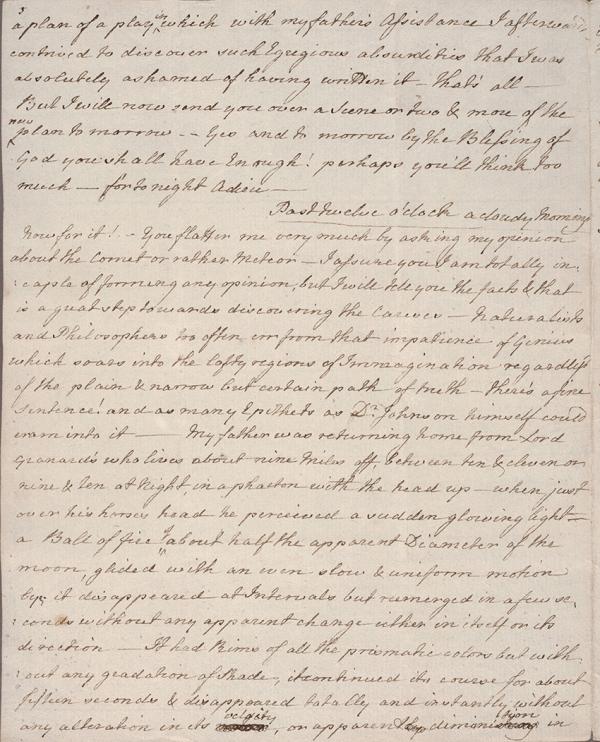 a plan of a play in which with my father's Assistance I afterwards
contrived to discover such Egregious absurdities that I was
absolutely ashamed of having written it — that's all —
But I will now send you over a Scene or two & more of the
new
plan to morrow - - Yes and to morrow by the Blessing of
God you shall have Enough! perhaps you'll think too
much — for to night Adieu —
Past twelve o'clock a cloudy Morning
Now for it! - You flatter me very much by asking my opinion
about the Comet or rather Meteor — I assure you I am totally in:
:caple of forming any opinion, but I will tell you the facts & that
is a great step towards discovering the Causes — Naturalists
and Philosophers too often err from that impatience of Genius
which soars into the lofty regions of Immagination regardless
of the plain & narrow but certain path of truth — there's a fine
Sentence! and as many Epithets as Dr. Johnson himself could
cram into it — My father was returning home from Lord
Granards who lives about nine Miles off, between ten & eleven or
nine & ten at Night, in a phaeton with the head up — when just
over his horses head he perceived a sudden glowing light —
a Ball of fire about half the apparent Diameter of the
moon, glided with an even slow & uniform motion
it disappeared at Intervals but reemerged in a few se:
:conds without any apparent change either in itself or its
direction — It had Rims of all the prismatic colors but with:
:out any gradation of Shade, it continued its course for about
fifteen seconds & disappeared totally and instantly without
any alteration in its velocity, or apparent diminution in